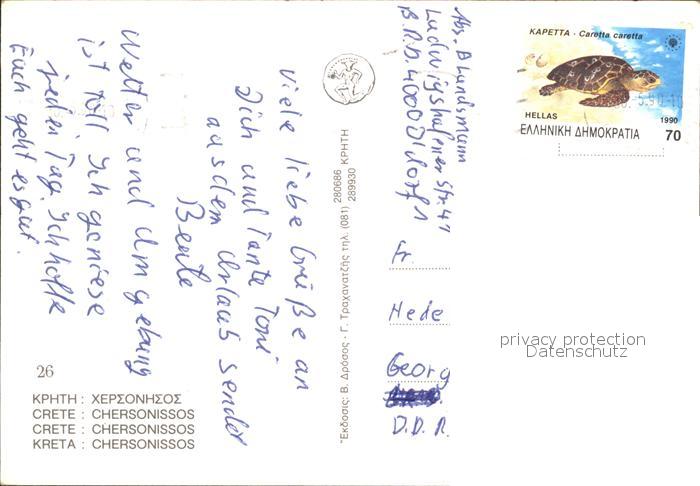 Viele liebe Grüße an
Dich und Tante Toni
aus dem Urlaub sendet
Beate
Wetter und Umgebung
ist toll Ich geniese
jeden Tag. Ich hoffe
Euch geht es gut.
Abs. B Landsmann
Ludwigshafener Str. 41
B.R.D. 4000 Dldorf 1
Fr.
Hede
Georg
D.D.R.
ΚΑΡΕΤΤΑ - Caretta caretta
HELLAS
1990
ΕΛΛΗΝΙΚΗ ΔΗΜΟΚΡΑΤΙΑ
70
privacy protection
Datenschutz
Έκδοσις: Β. Δρόσος - Γ. Τραχανατζής τηλ. (081) 280686 ΚΡΗΤΗ
289930
26
ΚΡΗΤΗ : ΧΕΡΣΟΝΗΣΟΣ
CRETE : CHERSONISSOS
CRETE : CHERSONISSOS
KRETA : CHERSONISSOS